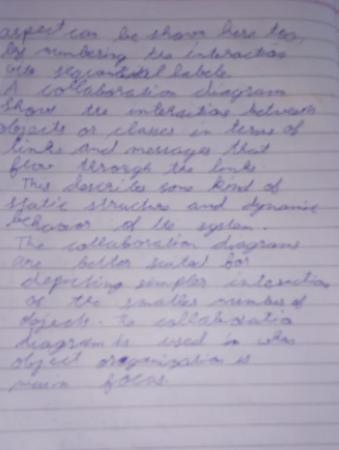 aspect can be shown here too,
by numbering the interaction
with sequential labels.
A collaboration diagram
show the interactions between
objects or classes in terms of
links and messages that
flow through the links.
This describes some kind of
static structure and dynamic
behavior of the system.
The collaboration diagrams
are better suited for
depicting simpler interaction
of the smaller number of
objects. The collaboration
diagram is used in when
object organization is
main focus